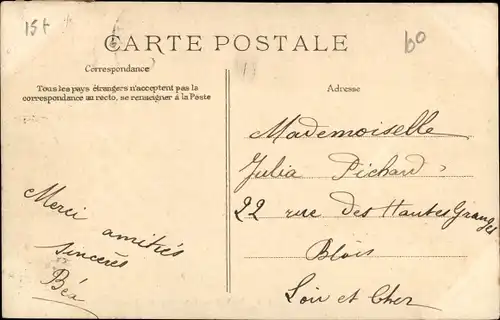 15t
60
CARTE POSTALE
Correspondance
Tous les pays étrangers n'acceptent pas la
correspondance au recto, se renseigner à la Poste
Adresse
Merci amitiés
sincères
Béa
Mademoiselle
Julia Pichard
22 rue des Hautes Granges
Blois
Loir et Cher